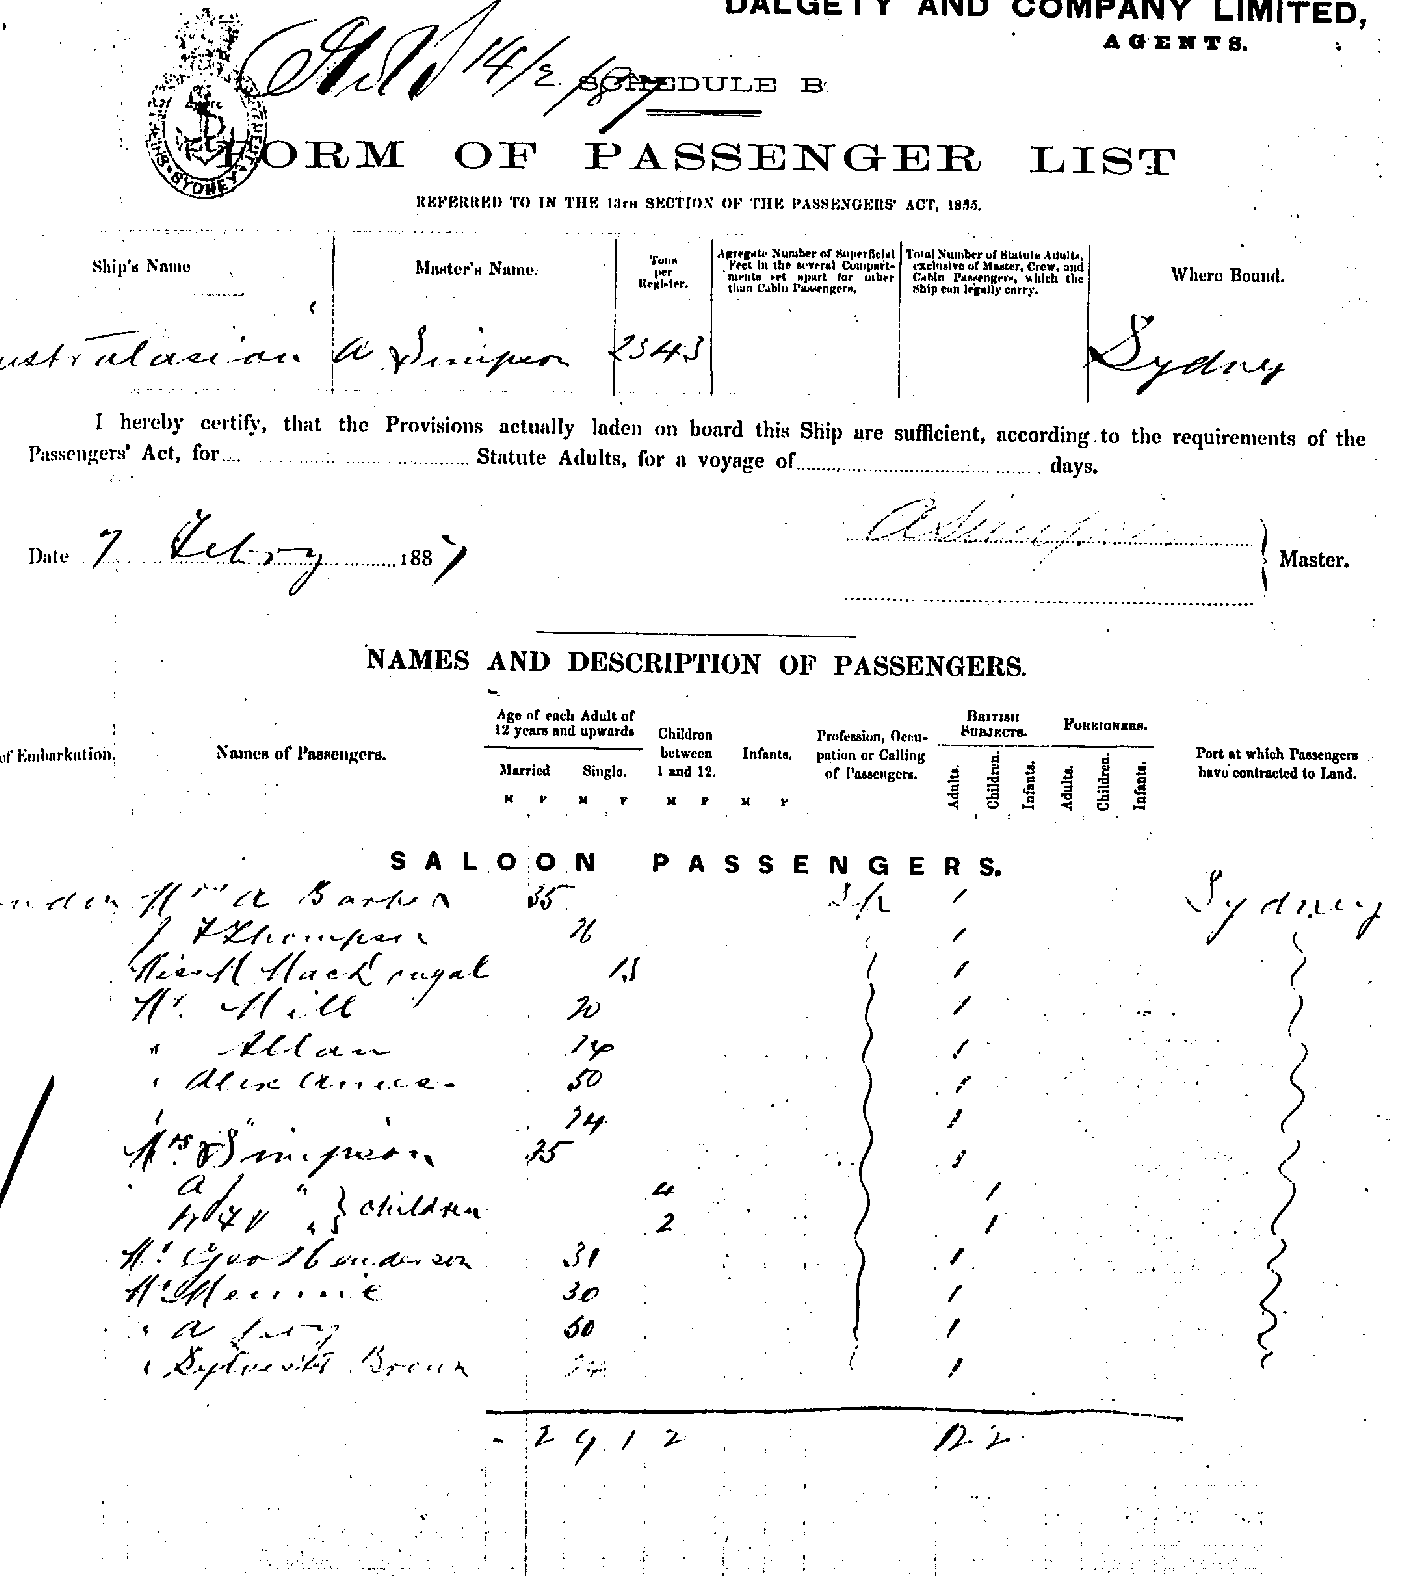 DALGETY AND COMPANY LIMITED,
AGENTS.
14/2/87
SCHEDULE B
FORM OF PASSENGER LIST
SYDNEY
REFERRED TO IN THE 13TH SECTION OF THE PASSENGERS' ACT, 1855.
Ship's Name Master's Name. Tons per Register. Agregate Number of Superficial Feet in the several Compartments set apart for other than Cabin Passengers. Total Number of Statute Adults, exclusive of Master, Crew, and Cabin Passengers, which the Ship can legally carry. Where Bound.
ustralasian A Simpson 2343 Sydney
I hereby certify, that the Provisions actually laden on board this Ship are sufficient, according to the requirements of the
Passengers' Act, for Statute Adults, for a voyage of days.
A Simpson
Date 7 Febry 1887 Master.
NAMES AND DESCRIPTION OF PASSENGERS.
of Embarkation. Names of Passengers. Age of each Adult of 12 years and upwards Married Single. Children between 1 and 12. Infants. Profession, Occupation or Calling of Passengers. BRITISH SUBJECTS. FOREIGNERS. Port at which Passengers have contracted to Land.
Adults. Children. Infants. Adults. Children. Infants.
M F M F M F M F
SALOON PASSENGERS.
ondon Mrs A Barber 35 1 Sydney
J Thompson 26 1
Miss M 1
Mr. Mill 20 1
" Allan 24 1
" Alex 50 1
" 24 1
Mrs. Simpson 25 1
A " 4 1
" children 2 1
Mr Geo Henderson 31 1
Mr Mennie 30 1
" A 50 1
" Sylvester Brown 24 1
- 2 9 1 2 12 2